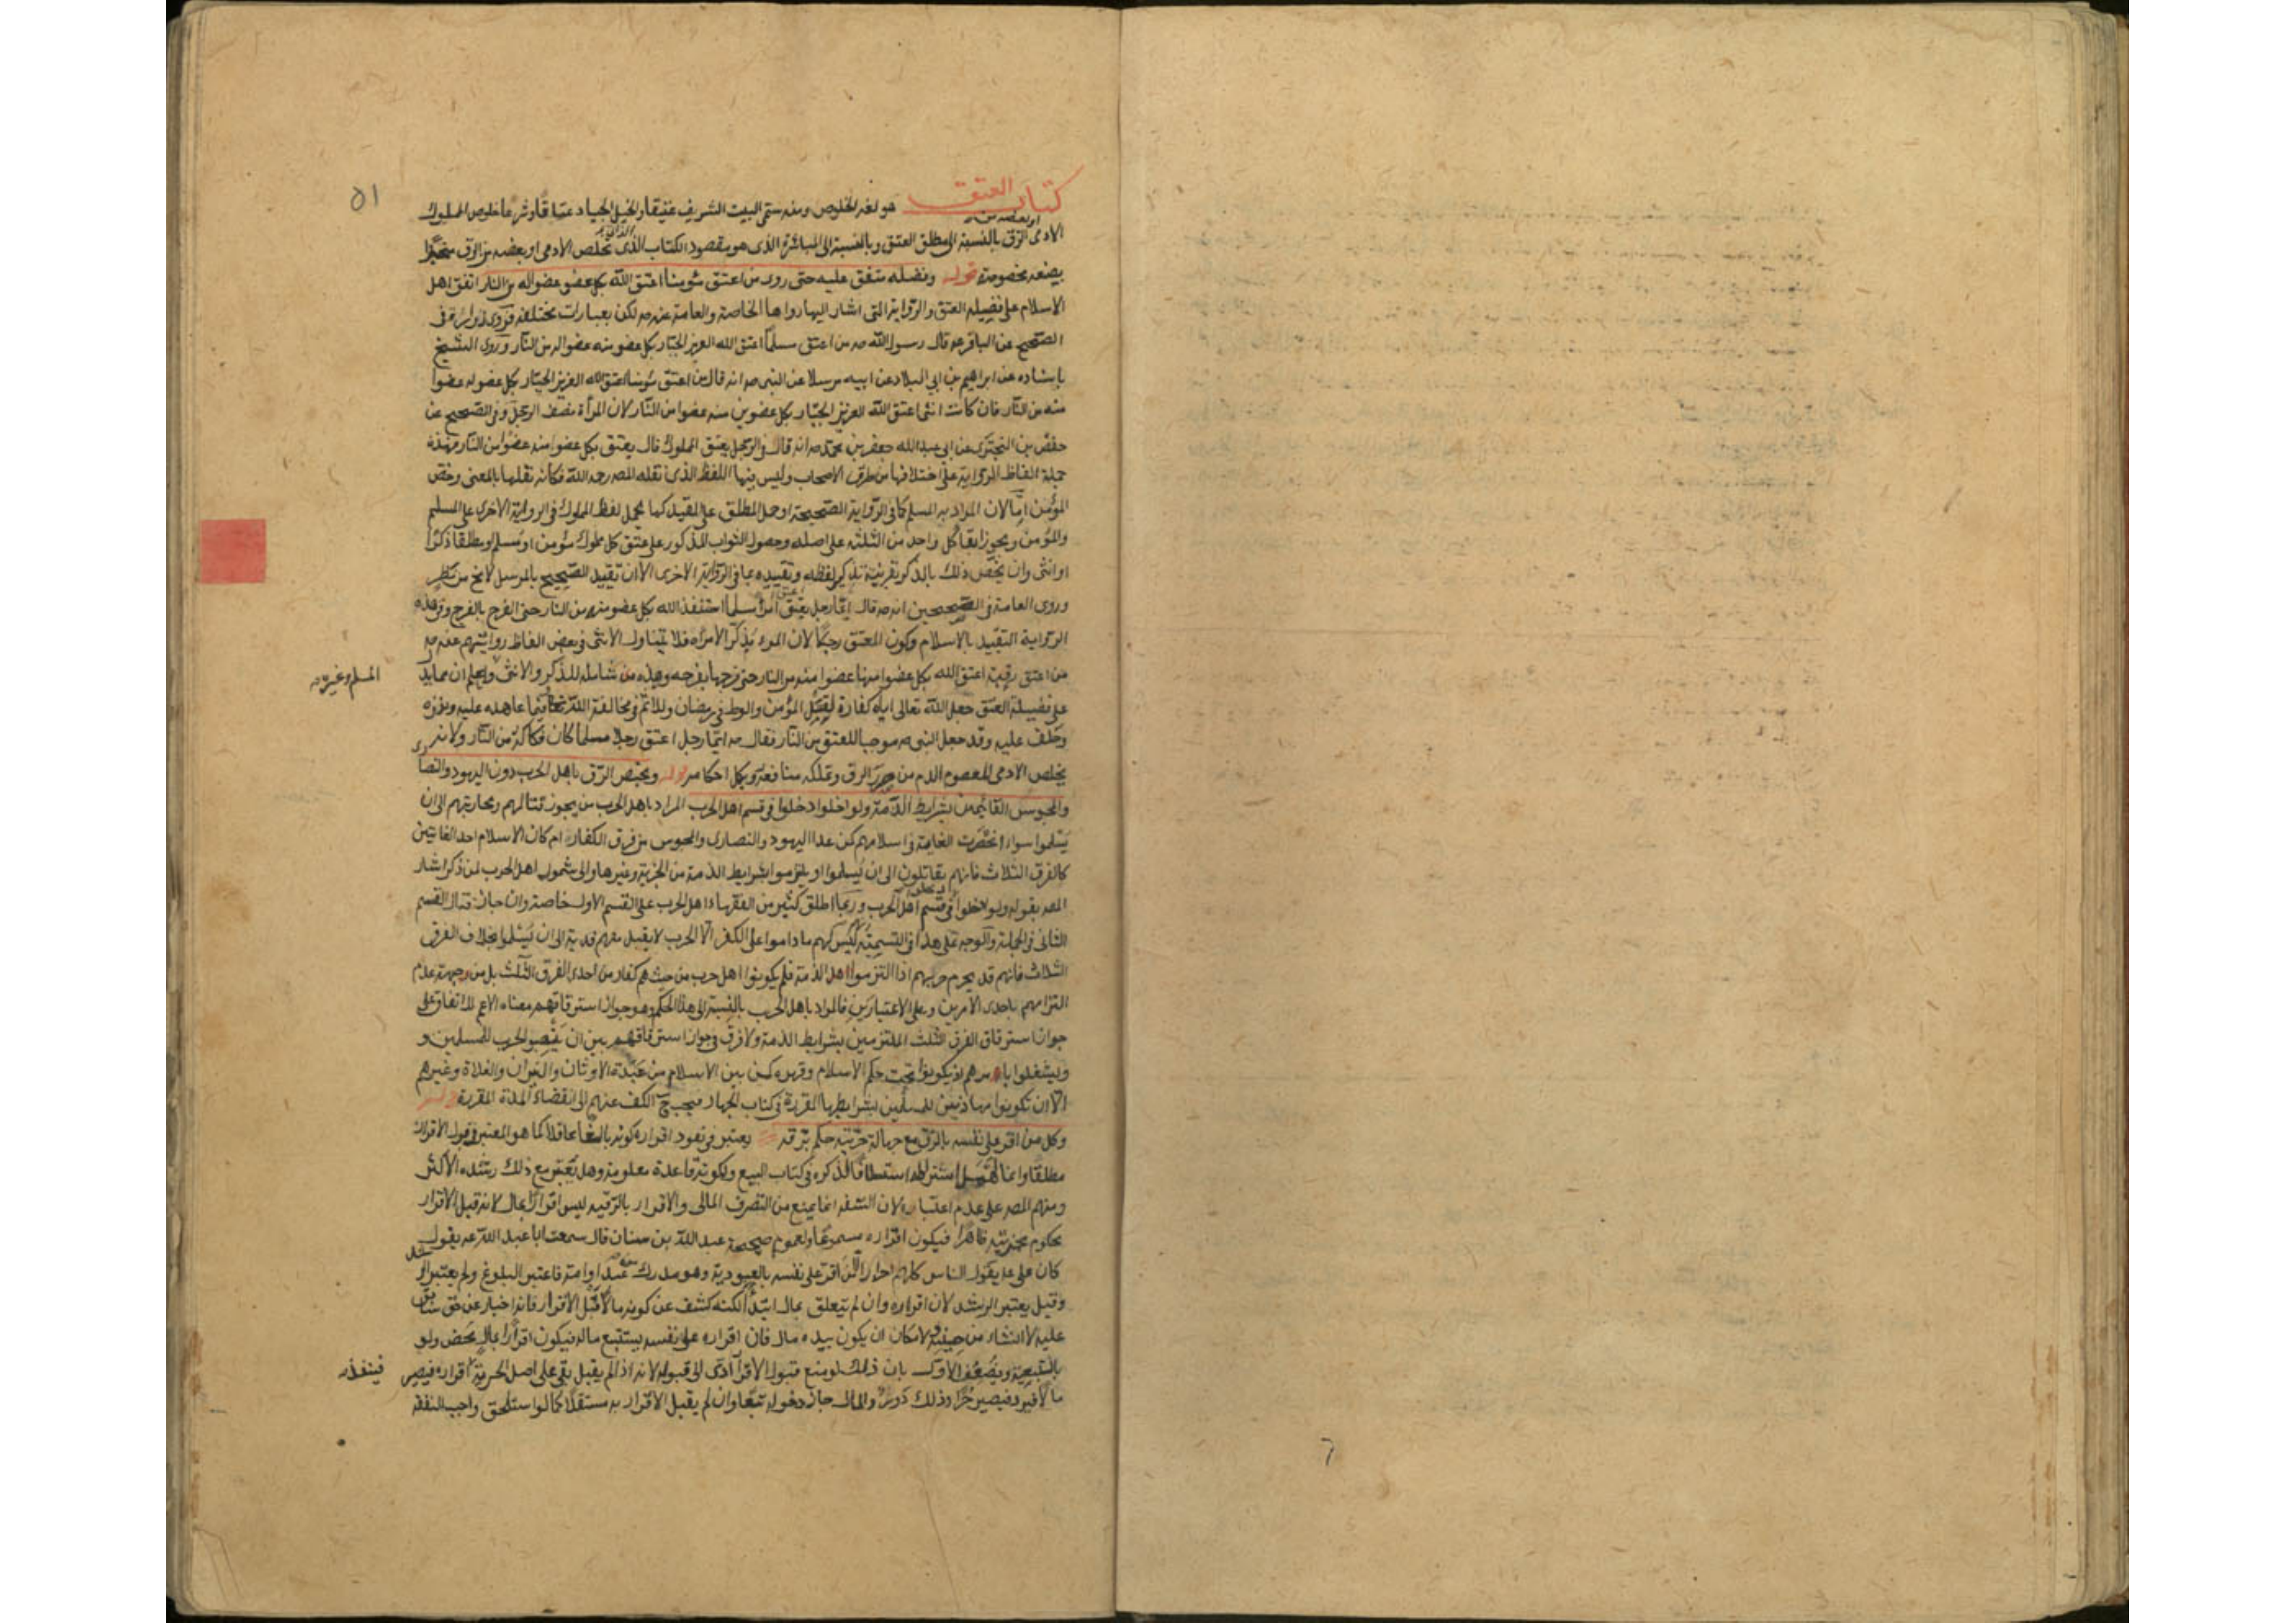 كتاب العتق هو لغة الخلوص ومنه سمى البيت الشريف عتيقا والخيل الجياد عتاقا وشرعا خلوص المملوك
الادمى او بعضه من الرق بالنسبة الى مطلق العتق وبالنسبة الى المباشرة الذى هو مقصود الكتاب الذاتى تخلص الادمى او بعضه من الرق منجزا
بصيغة مخصوصة قوله وفضله متفق عليه حتى روى من اعتق مؤمنا اعتق الله بكل عضو عضوا له من النار اتفق اهل
الاسلام على فضيلة العتق والرواية التى اشار اليها رواها الخاصة والعامة عنه ص لكن بعبارات مختلفة فروى زرارة فى
الصحيح عن الباقر ع قال قال رسول الله ص من اعتق مسلما اعتق الله العزيز الجبار بكل عضو منه عضوا له من النار وروى الشيخ
باسناده عن ابراهيم بن ابى البلاد عن ابيه مرسلا عن النبى ص انه قال من اعتق مؤمنا اعتق الله العزيز الجبار بكل عضو له عضوا
منه من النار فان كانت انثى اعتق الله العزيز الجبار بكل عضوين منه عضوا من النار لان المرأة نصف الرجل وفى الصحيح عن
حفص بن البخترى عن ابى عبدالله جعفر بن محمد ص انه قال فى الرجل يعتق المملوك قال يعتق بكل عضو منه عضوا من النار فهذه
جملة الفاظ الرواية على اختلافها من طرق الاصحاب وليس فيها اللفظ الذى نقله المصه رحمه الله فكانه نقلها بالمعنى وخص
المؤمن اما لان المراد به المسلم كما فى الرواية الصحيحة او حمل المطلق على المقيد كما يحمل لفظ المملوك فى الرواية الاخرى على المسلم
والمؤمن ويجوز ابقاء كل واحد من الثلثة على اصله وحصول الثواب المذكور على عتق كل مملوك مؤمن او مسلم او مطلقا ذكرا
او انثى وان يخص ذلك بالذكر بقرينة تذكير لفظه وتقييده بما فى الرواية الاخرى الا ان تقييد الصحيح بالمرسل لا يخ من نظر
وروى العامة فى الصحيحين انه ص قال ايما رجل اعتق امرأ مسلما استنقذ الله بكل عضو منه من النار حتى الفرج بالفرج وفى هذه
الرواية التقييد بالاسلام وكون المعتق رجلا لان المرء مذكر الامرأة فلا يتناول الانثى وفى بعض الفاظ روايتهم عنه ص
من اعتق رقبة اعتق الله بكل عضو منها عضوا منه من النار حتى فرجها بفرجه وهذه شاملة للذكر والانثى واعلم ان مما يدل
المسلم وغيره
على فضيلة العتق جعل الله تعالى اياه كفارة لقتل المؤمن والوطى فى رمضان وللاثم فى مخالفة الله تعالى فيما عاهده عليه ونذره
وحلف عليه وقد جعل النبى ص موجبا للعتق من النار فقال ص ايما رجل اعتق رجلا مسلما كان فكاكه من النار ولانه
يخلص الادمى المعصوم الدم من ضرر الرق وتملكه منافعه وتكمل احكامه قوله ويختص الرق باهل الحرب دون اليهود والنصارى
والمجوس القائمين بشرايط الذمة ولو اخلوا دخلوا فى قسم اهل الحرب المراد باهل الحرب من يجوز قتالهم ومحاربتهم الى ان
يسلموا سواء انحصرت الغاية فى اسلامهم كمن عدا اليهود والنصارى والمجوس من فرق الكفار ام كان الاسلام احد الغايتين
كالفرق الثلاث فانهم يقاتلون الى ان يسلموا او يلتزموا بشرايط الذمة من الجزية وغيرها والى شمول اهل الحرب لمن ذكر اشار
المصه بقوله ولو اخلوا دخلوا فى قسم اهل الحرب وربما اطلق كثير من الفقهاء اهل الحرب على القسم الاول خاصة وان جاز قتال القسم
الثانى فى الجملة والوجه على هذا فى التسمية انه ليس لهم ما داموا على الكفر الا الحرب لا يقبل منهم فدية الى ان يسلموا بخلاف الفرق
الثلاث فانهم قد يحرم حربهم اذا التزموا الذمة فلم يكونوا اهل حرب من حيث هم كفار من احدى الفرق الثلث بل من جهة عدم
التزامهم باحدى الامرين وعلى الاعتبارين فالمراد باهل الحرب بالنسبة الى هذا الحكم وهو جواز استرقاقهم معناه الاعم للاتفاق على
جواز استرقاق الفرق الثلث الملتزمين بشرايط الذمة ولا فرق فى جواز استرقاقهم بين ان ينصبوا الحرب للمسلمين و
يستقلوا بامرهم او يكونوا تحت حكم الاسلام وقهره كمن بين الاسلام من عبدة الاوثان والنيران والغلاة وغيرهم
الا ان يكونوا مهادنين للمسلمين بشرايطها المقررة فى كتاب الجهاد فيجب ح الكف عنهم الى انقضاء المدة المقررة قوله
وكل من اقر على نفسه بالرق مع جهالة حريته حكم برقه يعتبر فى نفوذ اقراره كونه بالغا عاقلا كما هو المعتبر فى قبول الاقرار
مطلقا وانما اهمل اشتراطه استسلافا لذكره فى كتاب البيع ولكونه قاعدة معلومة وهل يعتبر مع ذلك رشده الاكثر
ومنهم المصه على عدم اعتباره لان السفه انما يمنع من التصرف المالى والاقرار بالرقية ليس اقرارا بمال لانه قبل الاقرار
محكوم بحريته ظاهرا فيكون اقراره مسموعا ولعموم صحيحة عبدالله بن سنان قال سمعت ابا عبدالله ع يقول
كان على ع يقول الناس كلهم احرار الا من اقر على نفسه بالعبودية وهو مدرك من عبد او امة فاعتبر البلوغ ولم يعتبر الرشد
وقيل يعتبر الرشد لان اقراره وان لم يتعلق بمال ابتداء لكنه كشف عن كونه مالا قبل الاقرار فانه اخبار عن حق سابق
عليه لا انشاء من حينه ولامكان ان يكون بيده مال فان اقراره على نفسه يستتبع ماله فيكون اقرارا بمال محض ولو
بالتبعية ويضعف الاول بان ذلك لو منع قبول الاقرار ادى الى قبوله لانه اذا لم يقبل بقى على اصل الحرية اقراره فيصير
فينفذ
مالا فيرد فيصير حرا وذلك دور والمال جاز دخوله تبعا وان لم يقبل الاقرار به مستقلا كما لو استلحق واجب النفقة